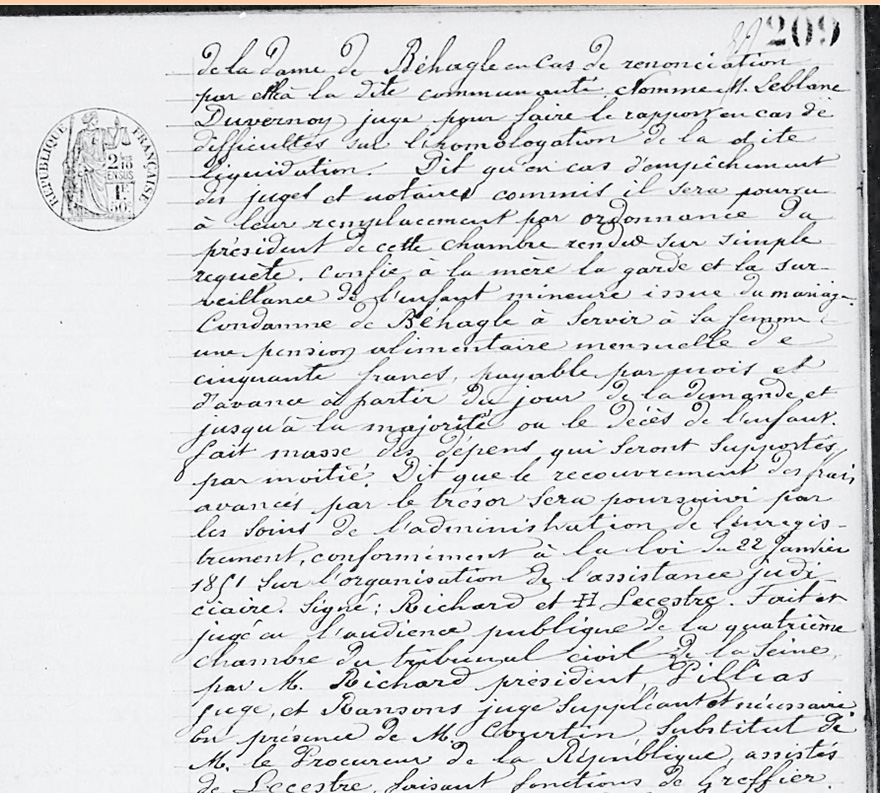 209
de la dame de Béhagle en cas de renonciation
par elle à la dite communauté. Nomme M. Leblanc
Duvernoy juge pour faire le rapport en cas de
difficultés sur l'homologation de la dite
liquidation. Dit qu'en cas d'empêchement
des juges et notaires commis il sera pourvu
à leur remplacement par ordonnance du
président de cette chambre rendue sur simple
requête. Confie à la mère la garde et la sur-
veillance de l'enfant mineure issue du mariage.
Condamne de Béhagle à servir à sa femme
une pension alimentaire mensuelle de
cinquante francs, payable par mois et
d'avance à partir du jour de la demande et
jusqu'à la majorité ou le décès de l'enfant.
Fait masse des dépens qui seront supportés
par moitié. Dit que le recouvrement des frais
avancés par le trésor sera poursuivi par
les soins de l'administration de l'enregis-
trement, conformément à la loi du 22 Janvier
1851 sur l'organisation de l'assistance judi
ciaire. Signé : Richard et H Lecestre. Fait et
jugé en l'audience publique de la quatrième
chambre du tribunal civil de la Seine,
par M. Richard président, Pillias
juge, et Ransons juge suppléant et nécessaire
En présence de M. Courtin Substitut de
M. le Procureur de la République, assistés
de Lecestre, faisant fonctions de Greffier.
RÉPUBLIQUE FRANÇAISE